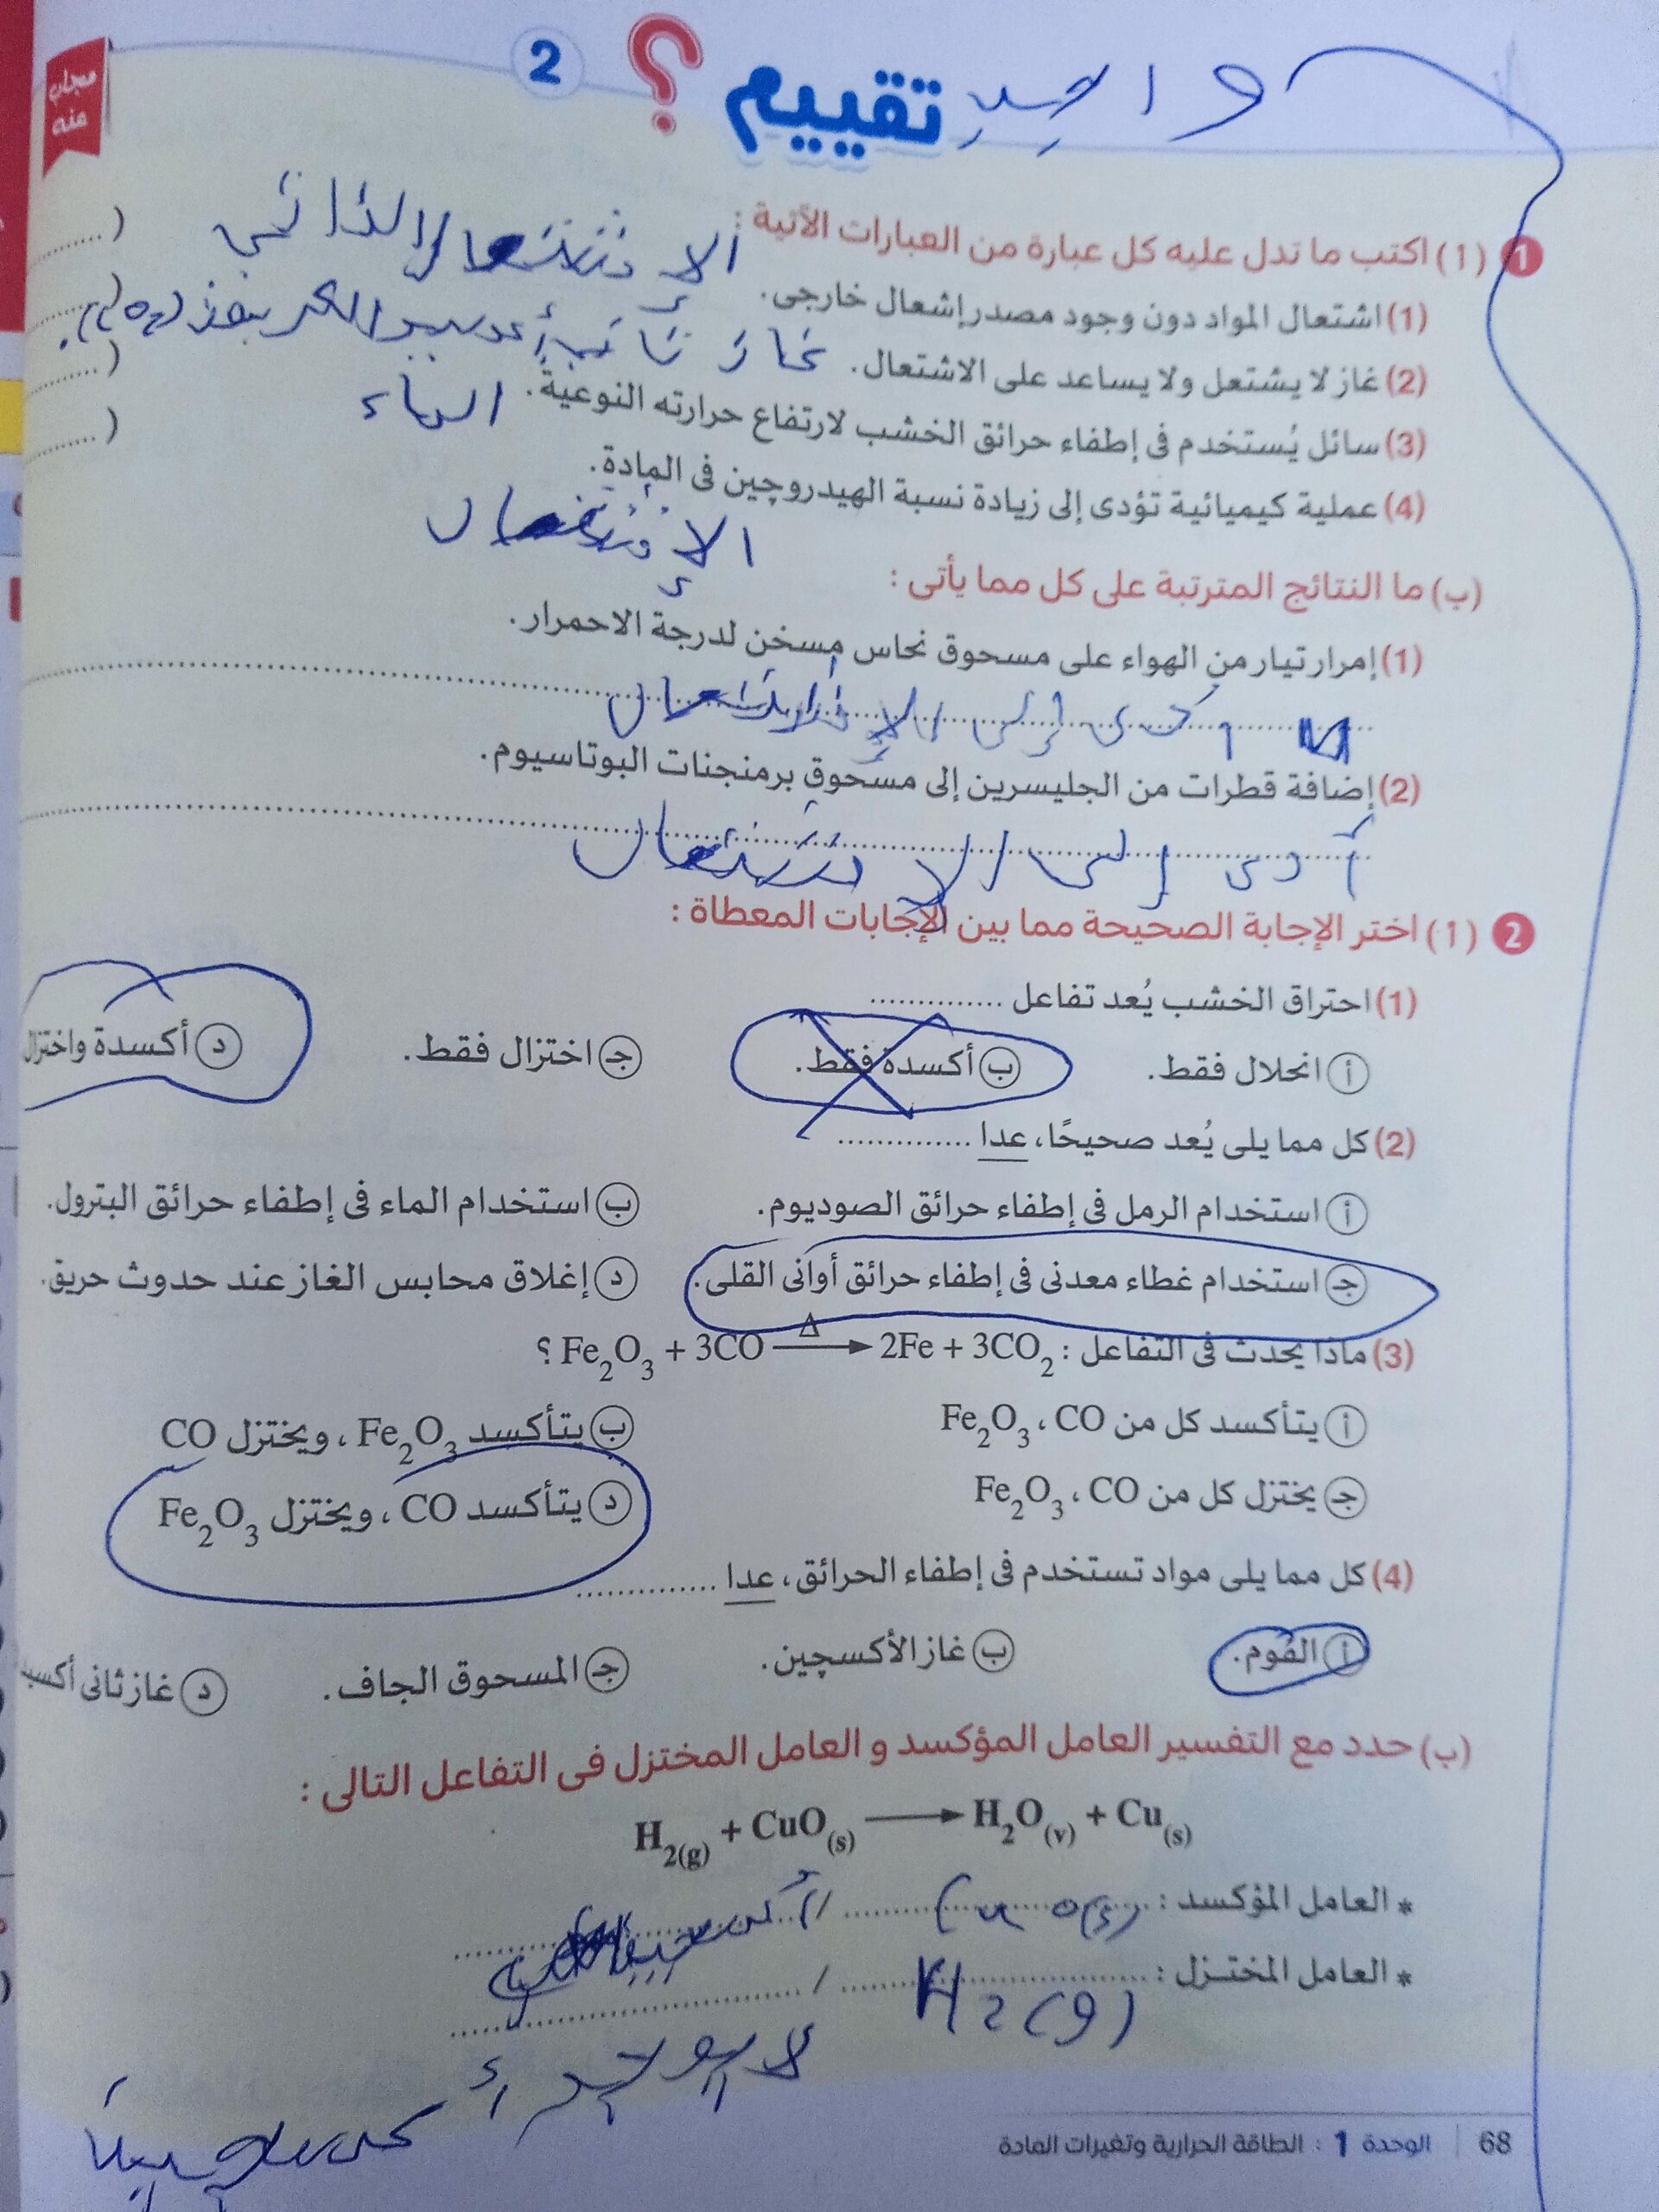 واحد
تقييم ؟ 2
مجاب منه
1 (1) اكتب ما تدل عليه كل عبارة من العبارات الآتية :
(1) اشتعال المواد دون وجود مصدر إشعال خارجى. (..........
الإشتعال الذاتي
(2) غاز لا يشتعل ولا يساعد على الاشتعال. (..........
غاز ثاني أكسيد الكربون
(3) سائل يُستخدم فى إطفاء حرائق الخشب لارتفاع حرارته النوعية. (..........
الماء
(4) عملية كيميائية تؤدى إلى زيادة نسبة الهيدروچين فى المادة. (..........
(ب) ما النتائج المترتبة على كل مما يأتى :
(1) إمرار تيار من الهواء على مسحوق نحاس مسخن لدرجة الاحمرار.
أدى إلى الإشتعال
(2) إضافة قطرات من الجليسرين إلى مسحوق برمنجنات البوتاسيوم.
أدى إلى الإشتعال
2 (1) اختر الإجابة الصحيحة مما بين الإجابات المعطاة :
(1) احتراق الخشب يُعد تفاعل ..............
أ انحلال فقط. ب أكسدة فقط. ج اختزال فقط. د أكسدة واختزال
(2) كل مما يلى يُعد صحيحًا، عدا ..............
أ استخدام الرمل فى إطفاء حرائق الصوديوم. ب استخدام الماء فى إطفاء حرائق البترول.
ج استخدام غطاء معدنى فى إطفاء حرائق أوانى القلى. د إغلاق محابس الغاز عند حدوث حريق.
(3) ماذا يحدث فى التفاعل : Fe₂O₃ + 3CO —Δ→ 2Fe + 3CO₂ ؟
أ يتأكسد كل من Fe₂O₃ ، CO ب يتأكسد Fe₂O₃ ، ويختزل CO
ج يختزل كل من Fe₂O₃ ، CO د يتأكسد CO ، ويختزل Fe₂O₃
(4) كل مما يلى مواد تستخدم فى إطفاء الحرائق، عدا ..............
أ الفوم. ب غاز الأكسچين. ج المسحوق الجاف. د غاز ثانى أكسيد
(ب) حدد مع التفسير العامل المؤكسد و العامل المختزل فى التفاعل التالى :
H₂(g) + CuO(s) ⟶ H₂O(v) + Cu(s)
* العامل المؤكسد : CuO(s) /
* العامل المختـزل : H2(g) /
68 | الوحدة 1 : الطاقة الحرارية وتغيرات المادة